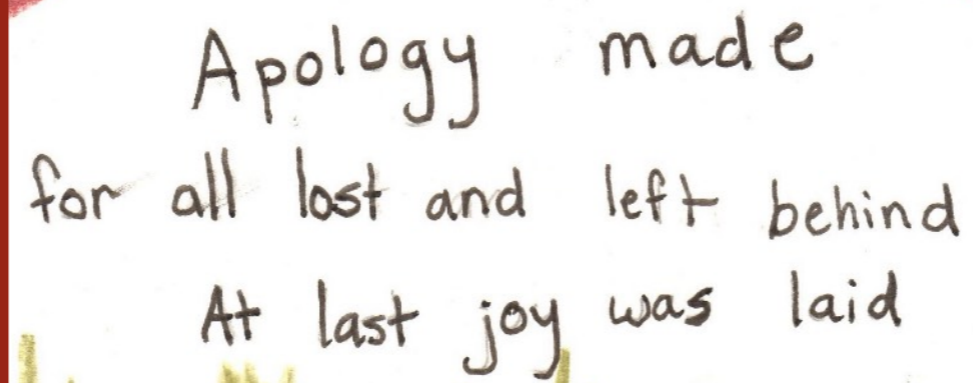 Apology made
for all lost and left behind
At last joy was laid